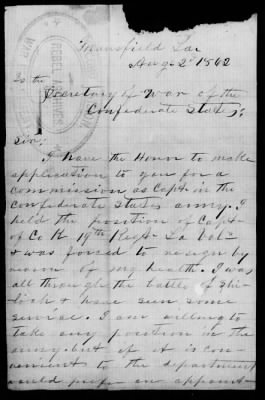 Mansfield La
Aug 2d 1862
To the
Secretary of War of the
Confederate States,
Sir;
I have the Honor to make
application to you for a
commission as Capt. in the
Confederate States army. I
held the position of Capt.
of Co K 19th Regt La Vols
& was forced to resign by
reason of my health. I was
all through the battle of Shi-
loh & have seen some
service. I am willing to
take any position in the
army. but if it is con-
venient to the department
would prefer an appoint-
REBEL ARCHIVES
WAR